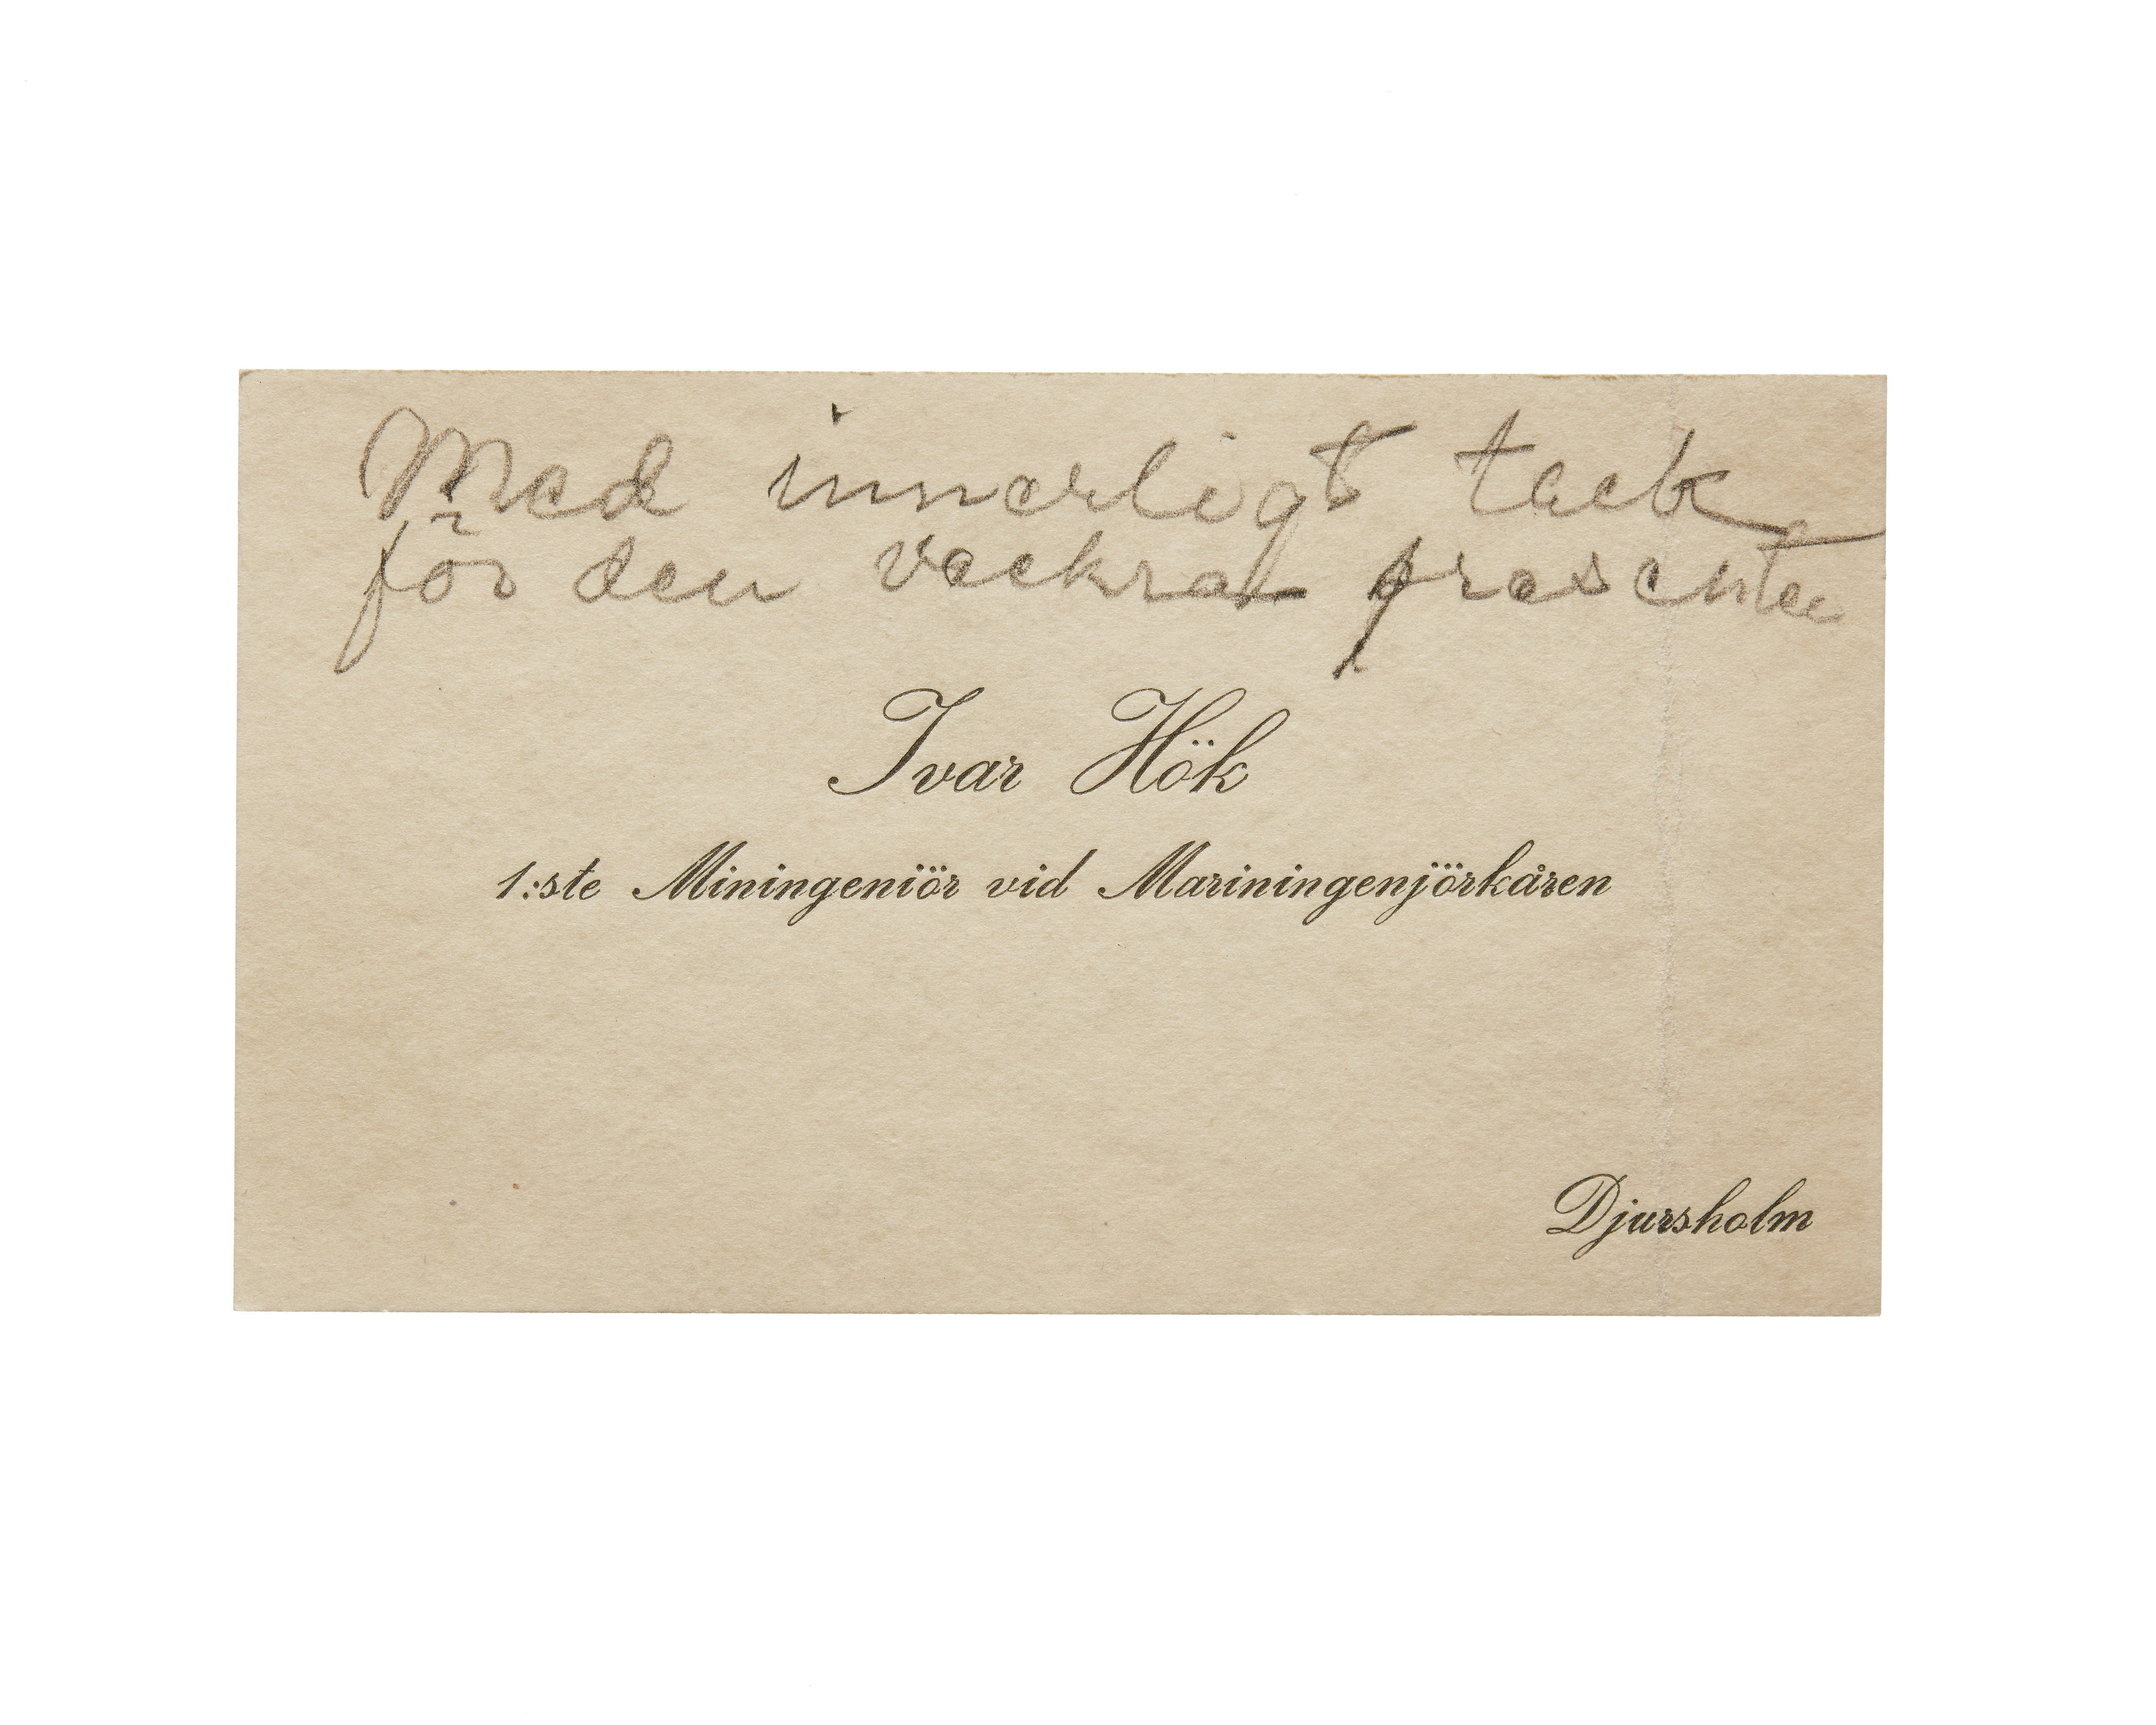 Med innerligt tack
för den vackra presenten
Ivar Hök
1:ste Miningeniör vid Mariningenjörkåren
Djursholm